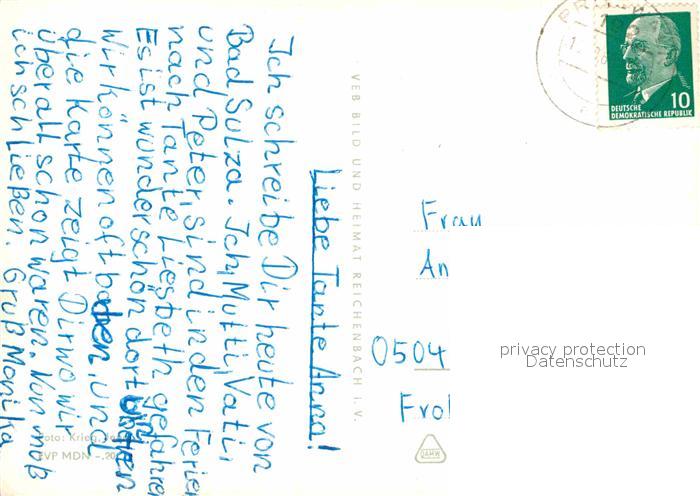 Liebe Tante Anna!
Ich schreibe Dir heute von
Bad Sulza. Ich, Mutti, Vati,
und Peter, sind in den Ferien
nach Tante Liesbeth gefahren
Es ist wunderschön dort unten
Wir können oft baden, und
die Karte zeigt Dir wo wir
überall schon waren. Nun muß
ich schließen. Gruß Monika
VEB BILD UND HEIMAT REICHENBACH I. V.
Foto: Krieg,
EVP MDN -.20
10
DEUTSCHE
DEMOKRATISCHE REPUBLIK
Frau
An
0504
Fro
privacy protection
Datenschutz